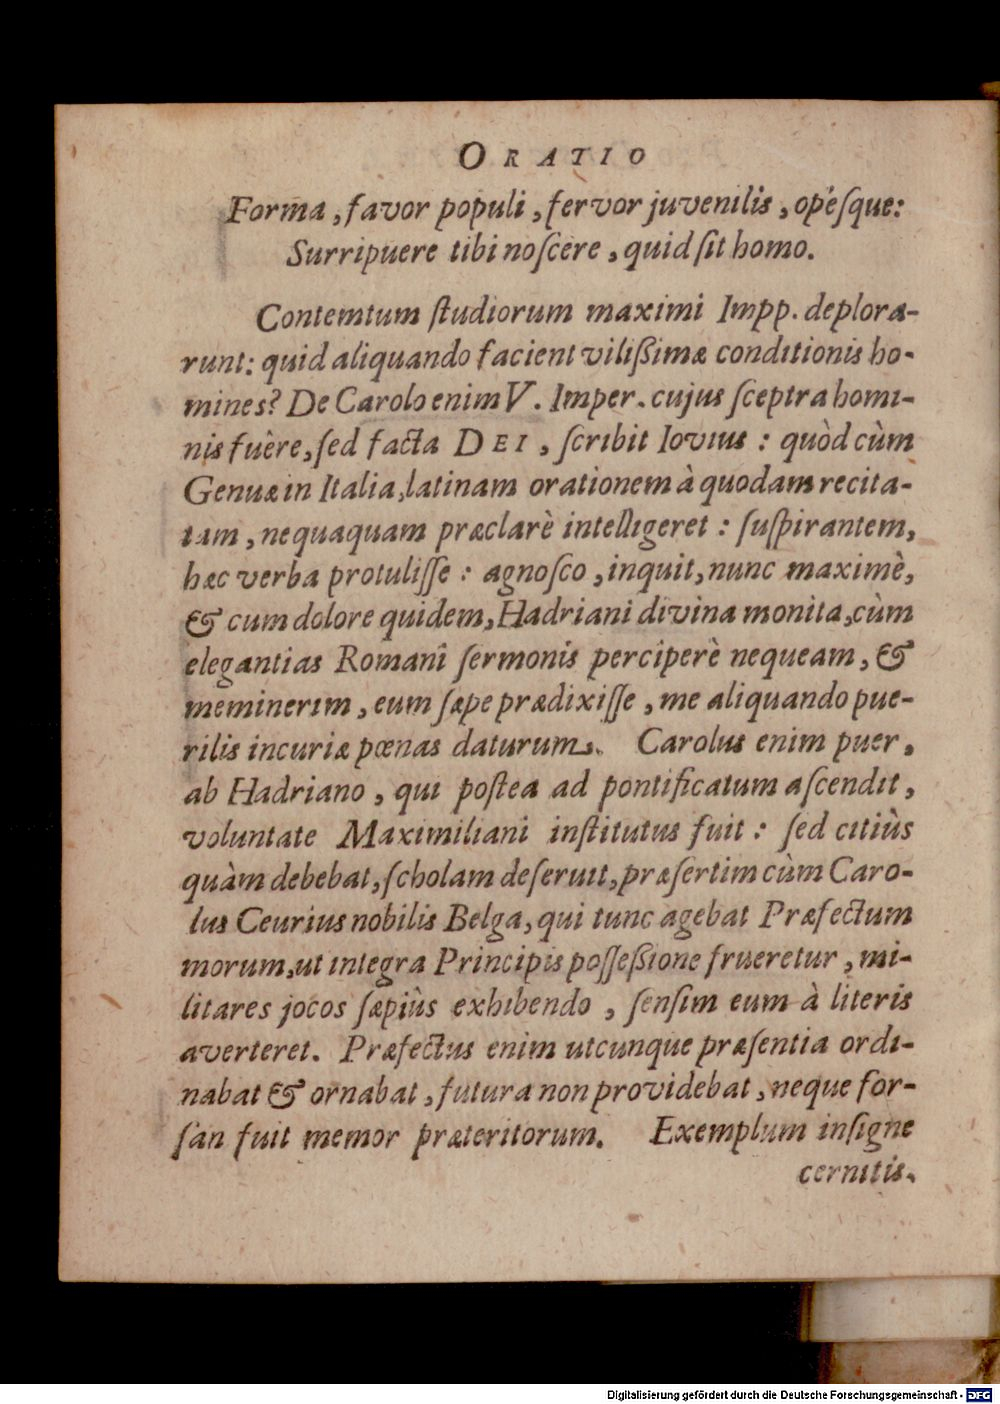 ORATIO
Forma, favor populi, fervor juvenilis, opésque:
Surripuere tibi noſcere, quid ſit homo.
Contemtum ſtudiorum maximi Impp. deplora-
runt: quid aliquando facient viliſſimæ conditionis ho-
mines? De Carolo enim V. Imper. cujus ſceptra homi-
nis fuêre, ſed facta DEI, ſcribit Iovius: quòd cùm
Genuæ in Italia, latinam orationem à quodam recita-
tam, nequaquam præclarè intelligeret: ſuſpirantem,
hæc verba protuliſſe: agnoſco, inquit, nunc maximè,
& cum dolore quidem, Hadriani divina monita, cùm
elegantias Romani ſermonis percipere nequeam, &
meminerim, eum ſæpe prædixiſſe, me aliquando pue-
rilis incuriæ pœnas daturum. Carolus enim puer,
ab Hadriano, qui poſtea ad pontificatum aſcendit,
voluntate Maximiliani inſtitutus fuit: ſed citiùs
quàm debebat, ſcholam deſeruit, præſertim cùm Caro-
lus Ceurius nobilis Belga, qui tunc agebat Præfectum
morum, ut integra Principis poſſeſſione frueretur, mi-
litares jocos ſæpiùs exhibendo, ſenſim eum à literis
averteret. Præfectus enim utcunque præſentia ordi-
nabat & ornabat, futura non providebat, neque for-
ſan fuit memor præteritorum. Exemplum inſigne
cernitis.
Digitalisierung gefördert durch die Deutsche Forschungsgemeinschaft - DFG